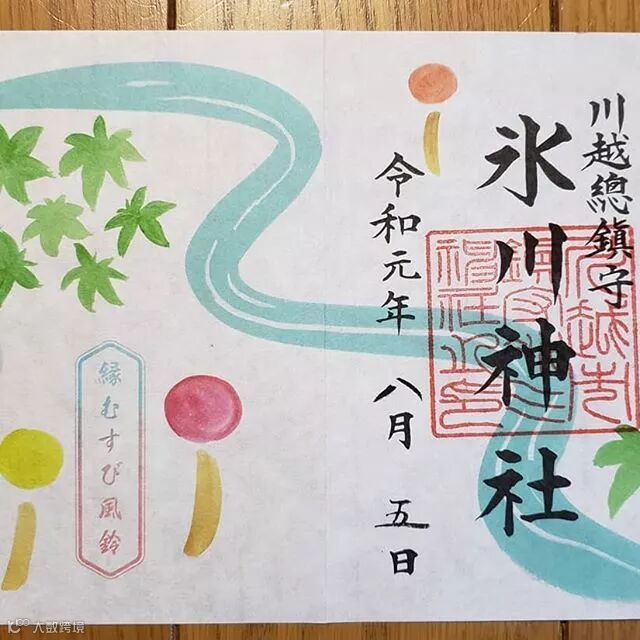 川越總鎮守
氷川神社
令和元年 八月 五日
縁むすび風鈴
大数跨境